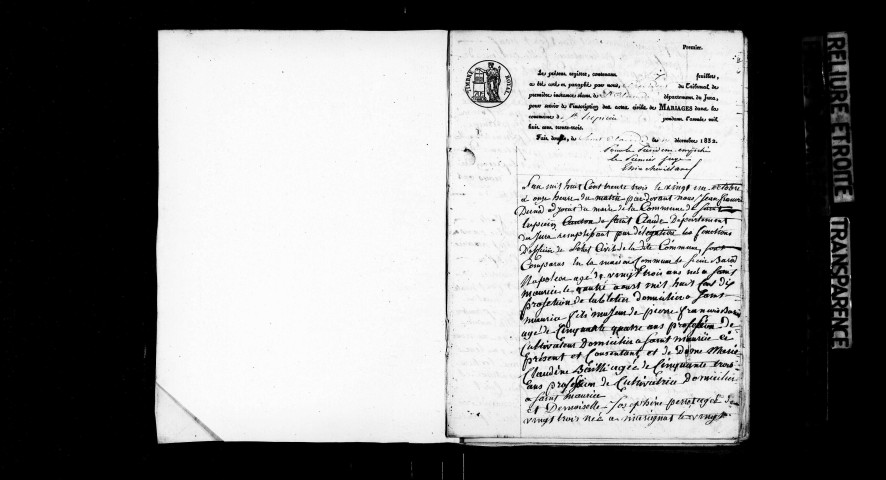 Premier.
TIMBRE ROYAL
Le présent registre, contenant feuillets,
a été coté et paraphé par nous, du Tribunal de
première instance séant de département du Jura,
pour servir de l'inscription des actes civils de MARIAGES dans la
commune de St Lupicin pendant l'année mil
huit cent trente-trois.
Fait double, à Saint Claude le décembre 1832.
Pour le Président empêché
le Premier juge
L'an mil huit Cent trente trois le vingt un octobre
à onze heure du matin par devant nous Jean francois
Durand adjoint du maire de la Commune de saint
lupicin Canton de saint Claude Departement
du Jura remplissant par délégation les fonctions
D'officier de l'etat Civil de la dite Commune, sont
Comparus en la maison Commune le sieur
Napoleon agé de vingt trois ans né a saint
maurice le quatre aoust mil huit Cent dix
profession de tabletier domicilié a saint
maurice fils majeur de pierre francois
agé de Cinquante quatre ans profession De
Cultivateur Domicilié a saint maurice ci
present et Consentant, et de dame Marie
Claudine Bailli agée de Cinquante trois
ans profession de Cultivatrice Domiciliée
a saint maurice
et Demoiselle Josephine perrot agée de
vingt trois née a marignat le vingt
RELIURE ETROITE
TRANSPARENCE